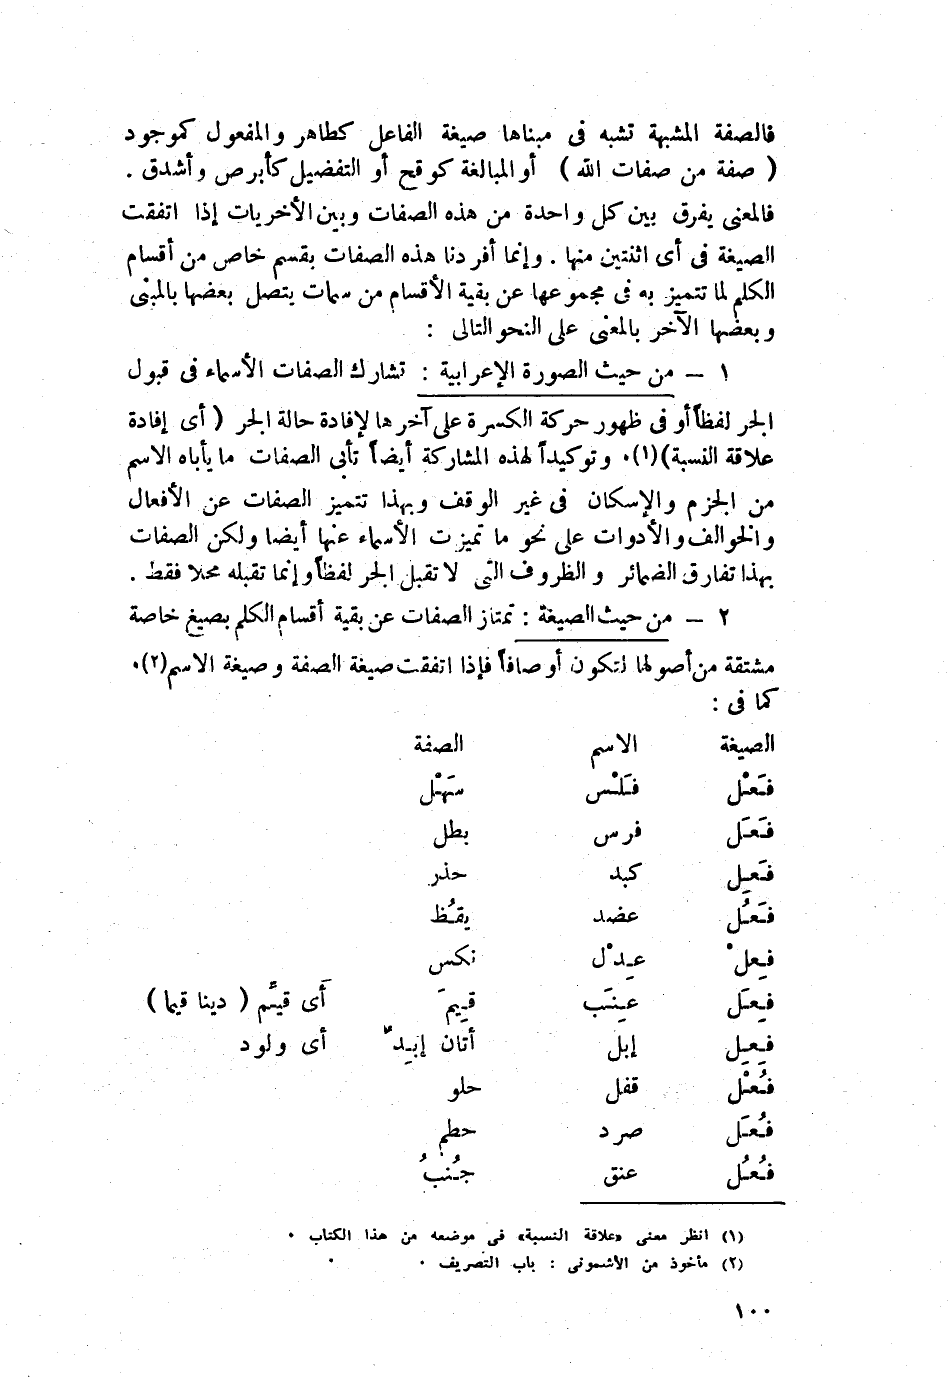 فالصفة المشبهة تشبه فى مبناها صيغة الفاعل كطاهر والمفعول كموجود
( صفة من صفات الله ) أو المبالغة كوقح أو التفضيل كأبرص وأشدق .
فالمعنى يفرق بين كل واحدة من هذه الصفات وبين الأخريات إذا اتفقت
الصيغة فى أى اثنتين منها . وإنما أفردنا هذه الصفات بقسم خاص من أقسام
الكلم لما تتميز به فى مجموعها عن بقية الأقسام من سمات يتصل بعضها بالمبنى
وبعضها الآخر بالمعنى على النحو التالى :
١ – من حيث الصورة الإعرابية : تشارك الصفات الأسماء فى قبول
الجر لفظاً أو فى ظهور حركة الكسرة على آخرها لإفادة حالة الجر ( أى إفادة
علاقة النسبة)(١)٠ وتوكيداً لهذه المشاركة أيضاً تأبى الصفات ما يأباه الاسم
من الجزم والإسكان فى غير الوقف وبهذا تتميز الصفات عن الأفعال
والخوالف والأدوات على نحو ما تميزت الأسماء عنها أيضا ولكن الصفات
بهذا تفارق الضمائر والظروف التى لا تقبل الجر لفظاً وإنما تقبله محلا فقط .
٢ – من حيث الصيغة : تمتاز الصفات عن بقية أقسام الكلم بصيغ خاصة
مشتقة من أصولها لتكون أوصافاً فإذا اتفقت صيغة الصفة وصيغة الاسم(٢)٠
كما فى :
الصيغة الاسم الصفة
فَعْل فَلْس سَهْل
فَعَل فرس بطل
فَعِل كبد حذر
فَعُل عضد يقُظ
فِعلْ عِدْل نكس
فِعَل عِنَب قِيمَ أى قيِّم ( دينا قيما )
فِعِل إبل أتان إبِدٌ أى ولود
فُعْل قفل حلو
فُعَل صرد حطم
فُعُل عنق جُنبُ
(١) انظر معنى «علاقة النسبة» فى موضعه من هذا الكتاب ٠
(٢) مأخوذ من الأشمونى : باب التصريف ٠
١٠٠